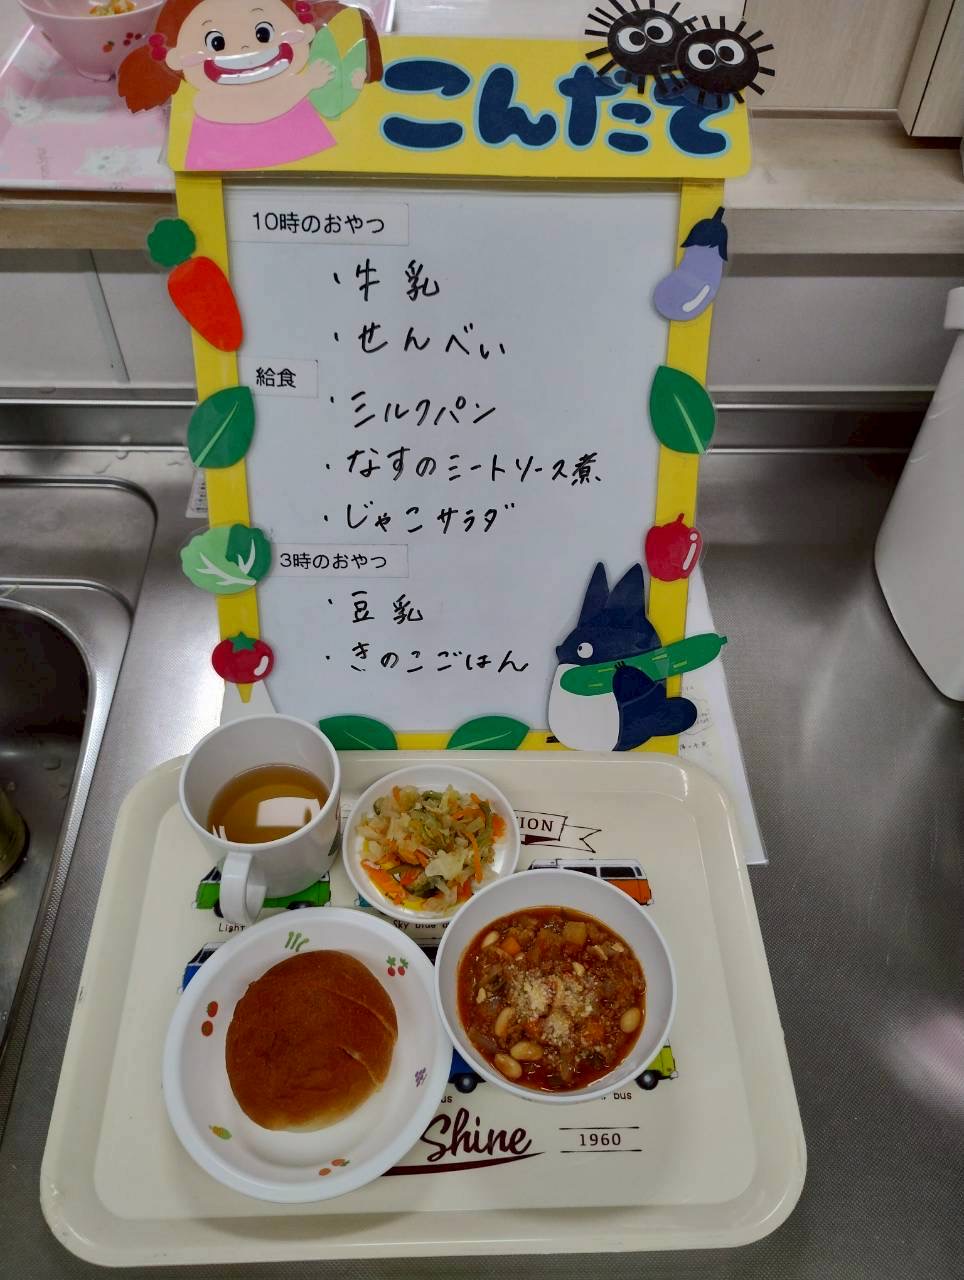 こんだて
10時のおやつ
・牛乳
・せんべい
給食
・ミルクパン
・なすのミートソース煮
・じゃこサラダ
3時のおやつ
・豆乳
・きのこごはん
ION
Light
Sky blue
us
bus
Shine
1960